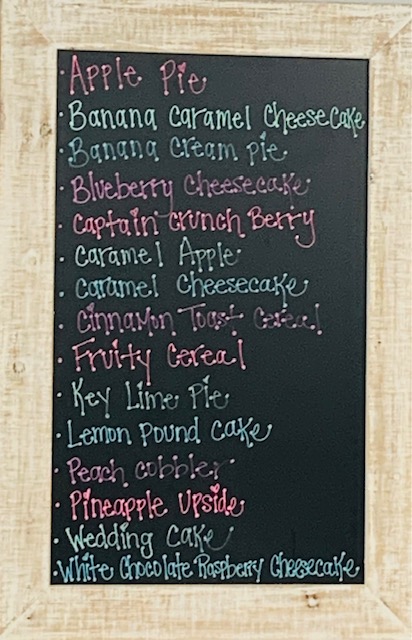 · Apple Pie
· Banana Caramel Cheesecake
· Banana Cream Pie
· Blueberry Cheesecake
· Captain Crunch Berry
· Caramel Apple
· Caramel Cheesecake
· Cinnamon Toast Cereal
· Fruity Cereal
· Key Lime Pie
· Lemon Pound Cake
· Peach Cobbler
· Pineapple Upside
· Wedding Cake
· White Chocolate Raspberry Cheesecake